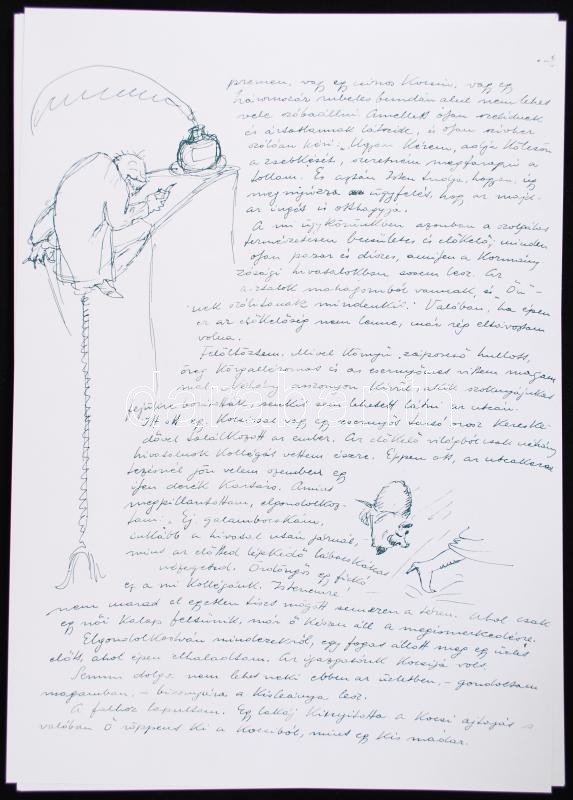 premen, vagy egy csinos kocsin, vagy egy
háromszáz rubeles bundán akit nem lehet
vele szóbaállni. Amellett olyan szelidnek
és ártatlannak látszik, és olyan szivhez
szólóan kéri: „Ugyan kérem, adja kölcsön
a zsebkését, szeretném megfaragni a
tollam. És aztán Isten tudja, hogyan, úgy
megnyúzza az ügyfelét, hogy az majd
az ingét is otthagyja.
A mi ügykörünkben azonban a szolgálat
természetesen becsületes és előkelő; minden
olyan pazar és díszes, amilyen a kormány-
zósági hivatalokban sosem lesz. Az
asztalok mahagóniból vannak, és „Ön“-
nek szólítanak mindenkit. Valóban, ha épen
ez az előkelőség nem lenne, már rég eltávoztam
volna.
Felöltöztem. Mivel könnyű záporeső hullott,
öreg körgalléromat és az esernyőmet vittem magam-
mal. Néhány asszonyon kívül, akik szoknyájukat
fejükre borították, senkit sem lehetett látni az utcán.
Itt ott egy kocsissal vagy egy esernyős tardó orosz keres-
kedővel találkozott az ember. Az előkelő világból csak néhány
hivatalnok kollégát vettem észre. Éppen ott, az utcakeresz-
tezésnél jön velem szemben egy
ilyen derék kortárs. Amint
megpillantottam, elgondolkoz-
tam: „Ej galambocskám,
inkább a hivatal után járnál,
mint az előtted lépkedő lábacskákat
nézegeted. Ördöngös egy fickó
ez a mi kollégánk. Istenemre!
nem marad el egyetlen tiszt mögött semmiben a téren. Ahol csak
egy női kalap feltűnik, már ő készen áll a megismerkedésre.
Elgondolkoztván mindezekről, egy fogat állott meg egy üzlet
előtt, ahol épen elhaladtam. Az igazgatónk kocsija volt.
Semmi dolga nem lehet neki ebben az üzletben, – gondoltam
magamban, – bizonyára a kisleánya lesz.
A falhoz lapultam. Egy lakáj kinyitotta a kocsi ajtaját s
valóban ő röppent ki a kocsiból, mint egy kis madár.